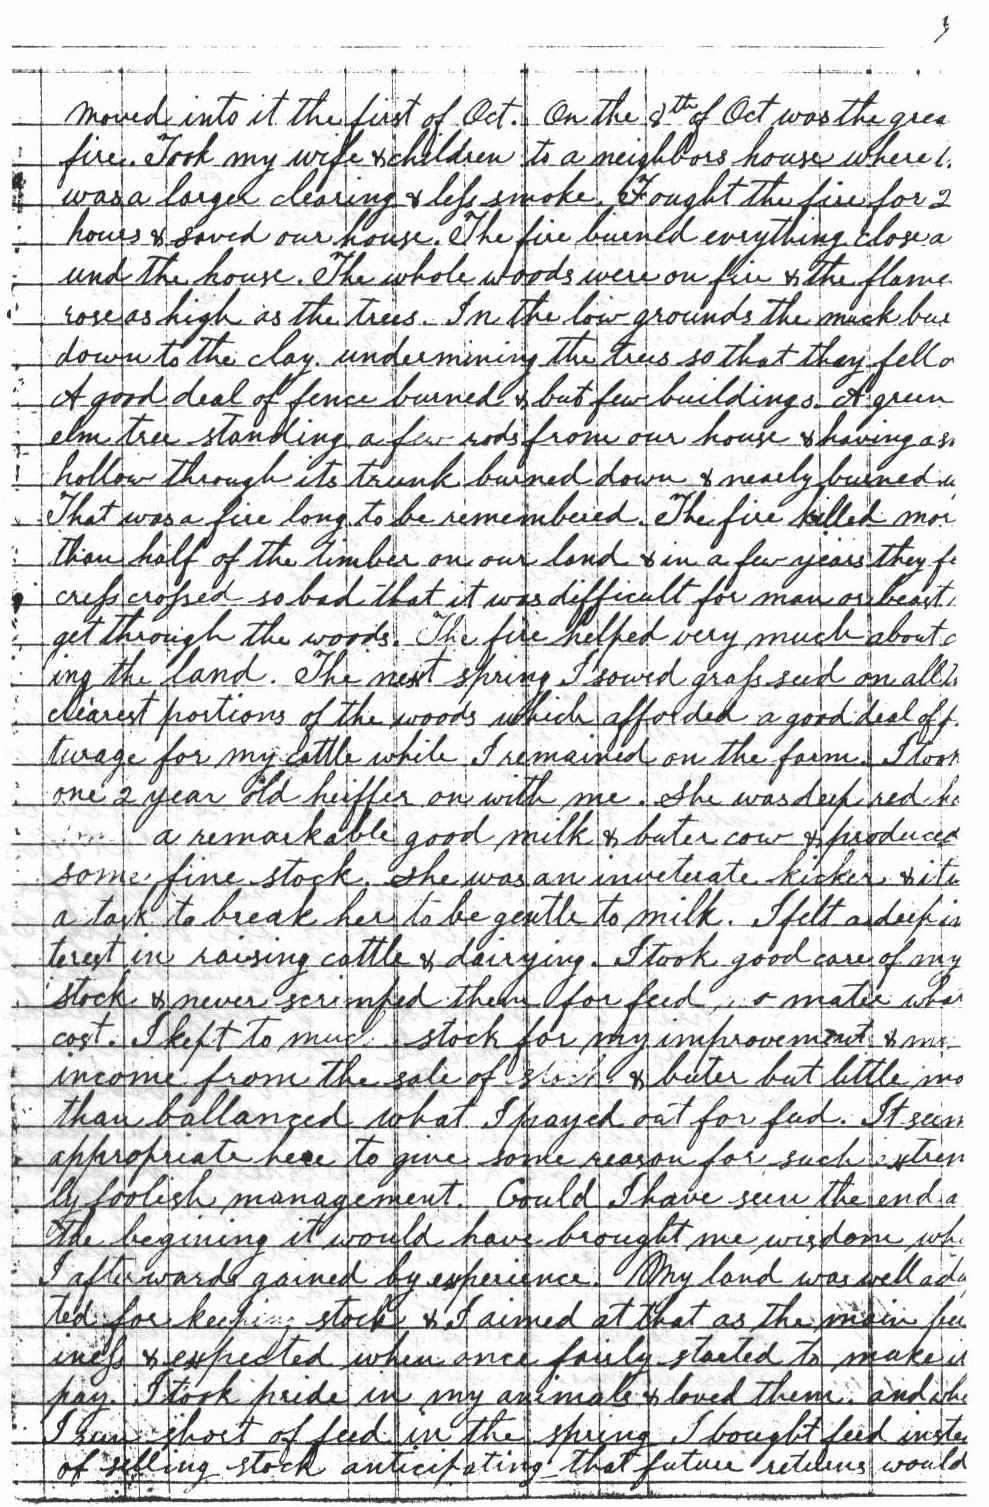 moved into it the first of Oct. On the 8th of Oct was the grea
fire. Took my wife & children to a neighbors house where
was a larger clearing & less smoke. Fought the fire for 2
hours & saved our house. The fire burned evrything close a
und the house. The whole woods were on fire & the flame
rose as high as the trees. In the low grounds the muck bur
down to the clay. undermining the trees so that they fell o
A good deal of fence burned & but few buildings. A green
elm tree standing a few rods from our house & having a s
hollow through its trunk burned down & nearly burned u
That was a fire long to be remembered. The fire killed mor
than half of the timber on our land & in a few years they fe
cress crossed so bad that it was difficult for man or beast
get through the woods. The fire helped very much about c
ing the land. The next spring I sowed grass seed on all
clearest portions of the woods which afforded a good deal of p
turage for my cattle while I remained on the farm. I took
one 2 year old heiffer on with me. She was deep red
a remarkable good milk & buter cow & produced
some fine stock. She was an inveterate kicker & it
a task to break her to be gentle to milk. I felt a deep in
terest in raising cattle & dairying. I took good care of my
stock & never scrimped them for feed mater what
cost. I kept to much stock for my improvement & my
income from the sale of stock & buter but little mo
than ballanced what I payed out for feed. It seem
appropriate here to give some reason for such extrem
ly foolish management. Could I have seen the end a
the begining it would have brought me wisdom wh
I afterwards gained by experience. My land was well ada
ted for keeping stock & I aimed at that as the main bu
iness & expected when once fairly started to make it
pay. I took pride in my animals & loved them. and whe
I run short of feed in the spring I bought feed inste
of selling stock anticipating that future returns would